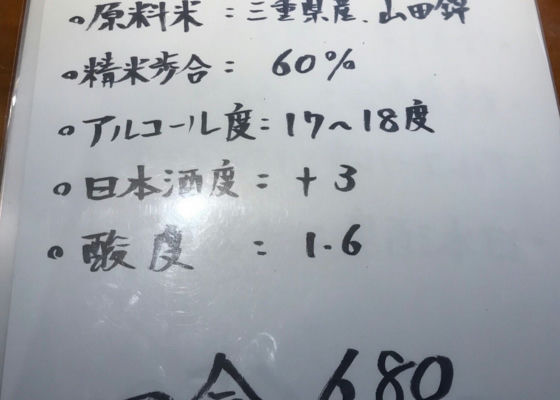 。原料米:三重県産、山田錦
。精米歩合: 60%
。アルコール度:17~18度
。日本酒度:+3
。酸度 : 1.6
一合 680